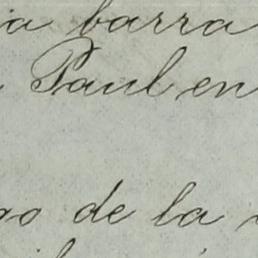 ia barra
Paul en
go de la